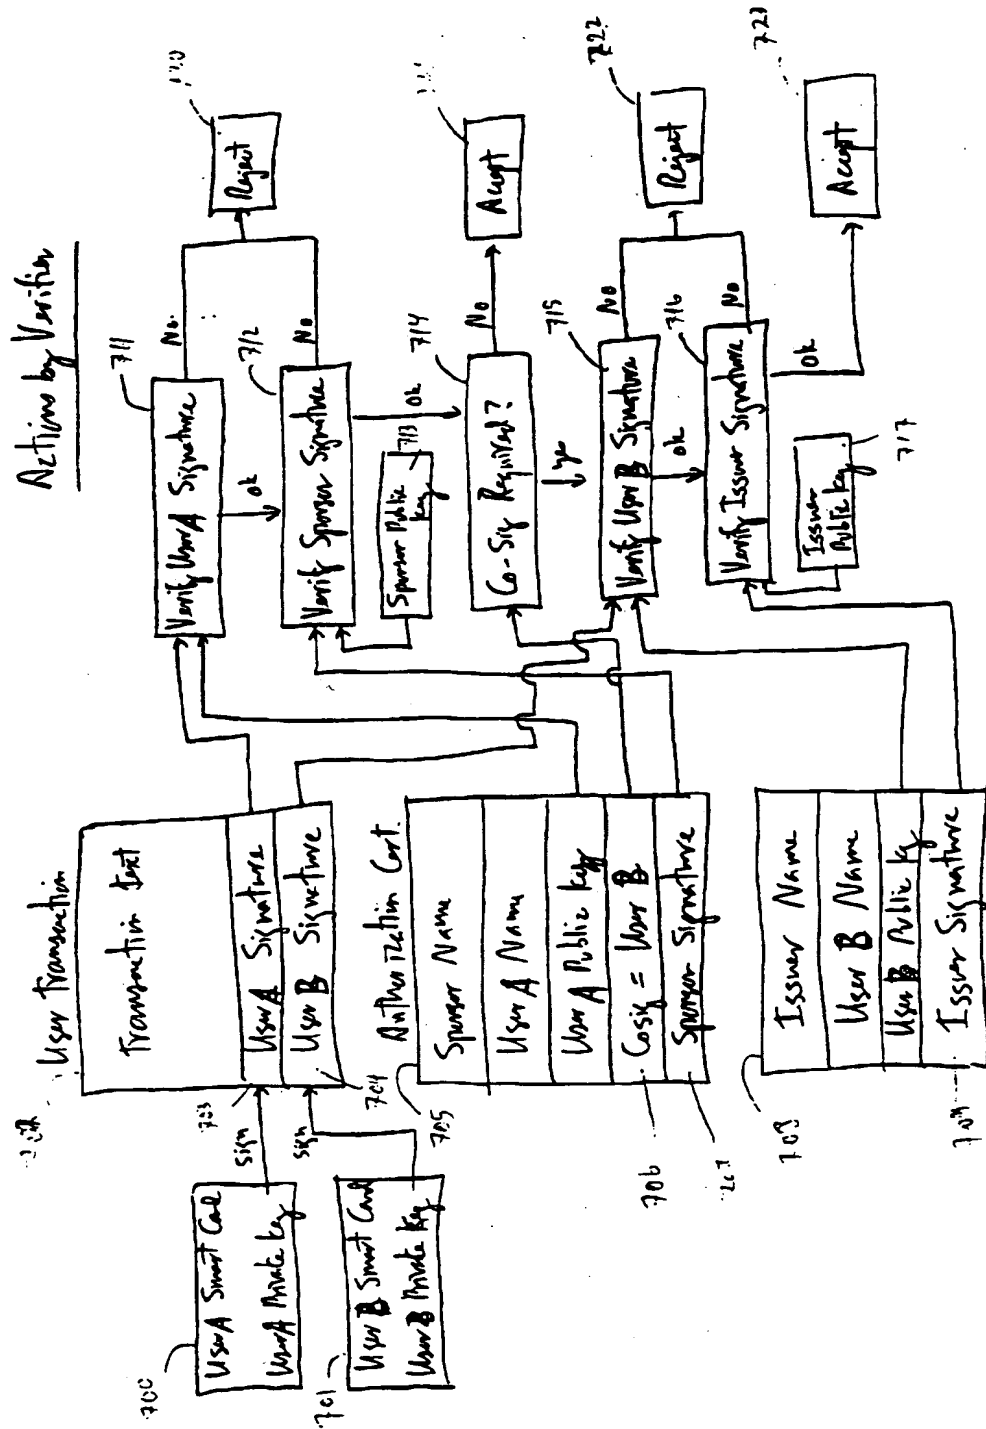 Actions by Verifier
700
User A Smart Card
User A Private Key
701
User B Smart Card
User B Private Key
sign
sign
User Transaction
Transaction Text
User A Signature
User B Signature
703
704
Authorization Cert.
705
Sponsor Name
User A Name
User A Public Key
Cosig = User B
Sponsor Signature
706
707
708
Issuer Name
User B Name
User B Public Key
Issuer Signature
709
711
Verify User A Signature
No.
ok
712
Verify Sponsor Signature
No
ok
713
Sponsor Public
Key
714
Co-Sig Required?
No
yes
715
Verify User B Signature
No
ok
716
Verify Issuer Signature
No
ok
Issuer
Public Key
717
Reject
Accept
722
Reject
723
Accept